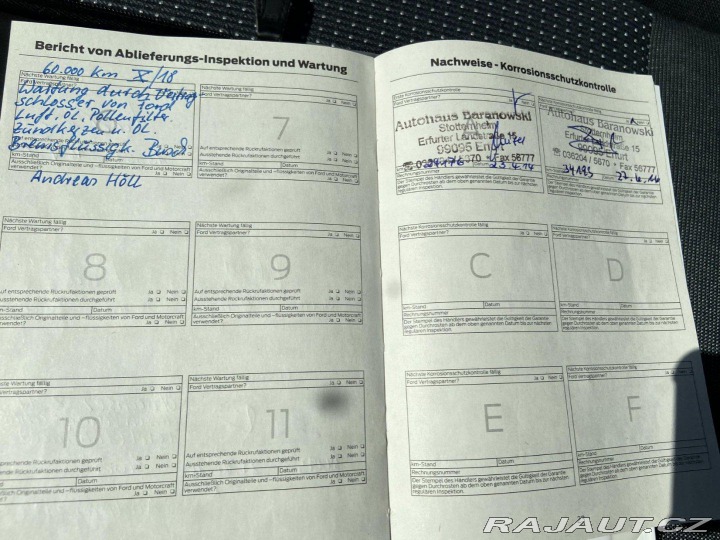 Bericht von Ablieferungs-Inspektion und Wartung
60.000 km X/18
Nächste Wartung fällig
Wartung durch Vertrag-
schlosser von Ford
Luft. Öl. Pollenfilter
Zündkerzen u. ÖL.
Bremsflüssigk. Bosch
km-Stand Datum
Ausschließlich Originalteile und -flüssigkeiten
Andreas Höll
Nächste Wartung fällig
Ford Vertragspartner? Ja Nein
7
Auf entsprechende Rückrufaktionen geprüft Ja Nein
Ausstehende Rückrufaktionen durchgeführt Ja Nein
km-Stand Datum
Ausschließlich Originalteile und -flüssigkeiten von Ford und Motorcraft
verwendet? Ja Nein
Nächste Wartung fällig
Ford Vertragspartner? Ja Nein
8
Auf entsprechende Rückrufaktionen geprüft Ja Nein
Ausstehende Rückrufaktionen durchgeführt Ja Nein
km-Stand Datum
Ausschließlich Originalteile und -flüssigkeiten von Ford und Motorcraft
verwendet? Ja Nein
Nächste Wartung fällig
Ford Vertragspartner? Ja Nein
9
Auf entsprechende Rückrufaktionen geprüft Ja Nein
Ausstehende Rückrufaktionen durchgeführt Ja Nein
km-Stand Datum
Ausschließlich Originalteile und -flüssigkeiten von Ford und Motorcraft
verwendet? Ja Nein
Nächste Wartung fällig
Ford Vertragspartner? Ja Nein
10
Rückrufaktionen geprüft Ja Nein
Rückrufaktionen durchgeführt Ja Nein
km-Stand Datum
Ausschließlich Originalteile und -flüssigkeiten von Ford und Motorcraft
verwendet? Ja Nein
Nächste Wartung fällig
Ford Vertragspartner? Ja Nein
11
Auf entsprechende Rückrufaktionen geprüft Ja Nein
Ausstehende Rückrufaktionen durchgeführt Ja Nein
km-Stand Datum
Ausschließlich Originalteile und -flüssigkeiten von Ford und Motorcraft
verwendet? Ja Nein
Nachweise - Korrosionsschutzkontrolle
Autohaus Baranowski
Stotternheim
Erfurter Landstraße 15
99095 Erfurt
Fax 56777
Rechnungsnummer
Der Stempel des Händlers gewährleistet die Gültigkeit der Garantie
gegen Durchrosten ab dem oben genannten Datum bis zur nächsten
regulären Inspektion.
Autohaus Baranowski
Stotternheim
Erfurter Landstraße 15
99095 Erfurt
☎ 036204 / 5670 • Fax 56777
Nächste Korrosionsschutzkontrolle fällig
Ford Vertragspartner? Ja Nein
C
km-Stand Datum
Rechnungsnummer
Der Stempel des Händlers gewährleistet die Gültigkeit der Garantie
gegen Durchrosten ab dem oben genannten Datum bis zur nächsten
regulären Inspektion.
Nächste Korrosionsschutzkontrolle fällig
Ford Vertragspartner? Ja Nein
D
km-Stand Datum
Rechnungsnummer
Der Stempel des Händlers gewährleistet die Gültigkeit der Garantie
gegen Durchrosten ab dem oben genannten Datum bis zur nächsten
regulären Inspektion.
Nächste Korrosionsschutzkontrolle fällig
Ford Vertragspartner? Ja Nein
E
km-Stand Datum
Rechnungsnummer
Der Stempel des Händlers gewährleistet die Gültigkeit der Garantie
gegen Durchrosten ab dem oben genannten Datum bis zur nächsten
regulären Inspektion.
Nächste Korrosionsschutzkontrolle fällig
Ford Vertragspartner? Ja Nein
F
km-Stand Datum
Rechnungsnummer
Der Stempel des Händlers gewährleistet die Gültigkeit der Garantie
gegen Durchrosten ab dem oben genannten Datum bis zur nächsten
regulären Inspektion.
RAJAUT.CZ